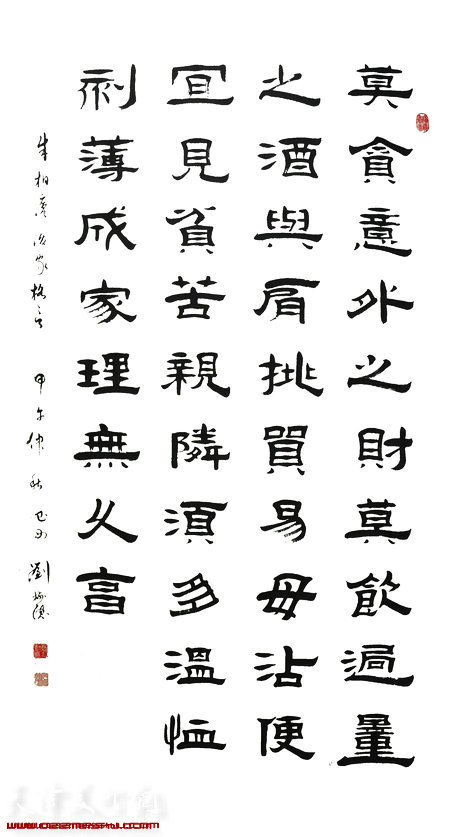 莫貪意外之財莫飲過量
之酒與肩挑貿易毋沾便
宜見貧苦親隣須多溫恤
刻薄成家理無久富
朱柏廬治家格言 甲午仲秋 劉
天津美术网